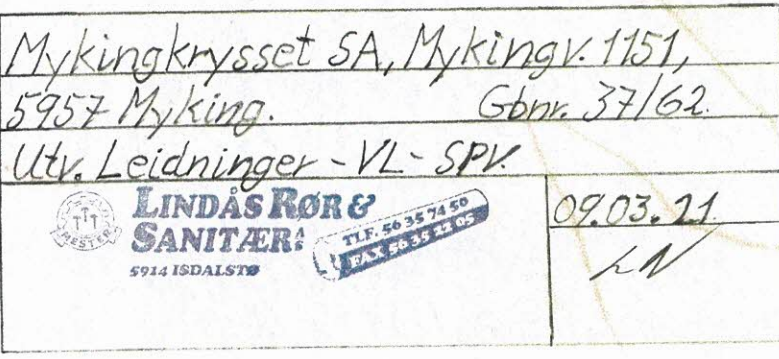 Mykingkrysset SA, Mykingv. 1151,
5957 Myking. Gbnr. 37/62.
Utv. Leidninger - VL - SPV.
MESTER
LINDÅS RØR &
SANITÆR
5914 ISDALSTØ
TLF. 56 35 74 50
FAX 56 35 22 05
09.03.21
LN